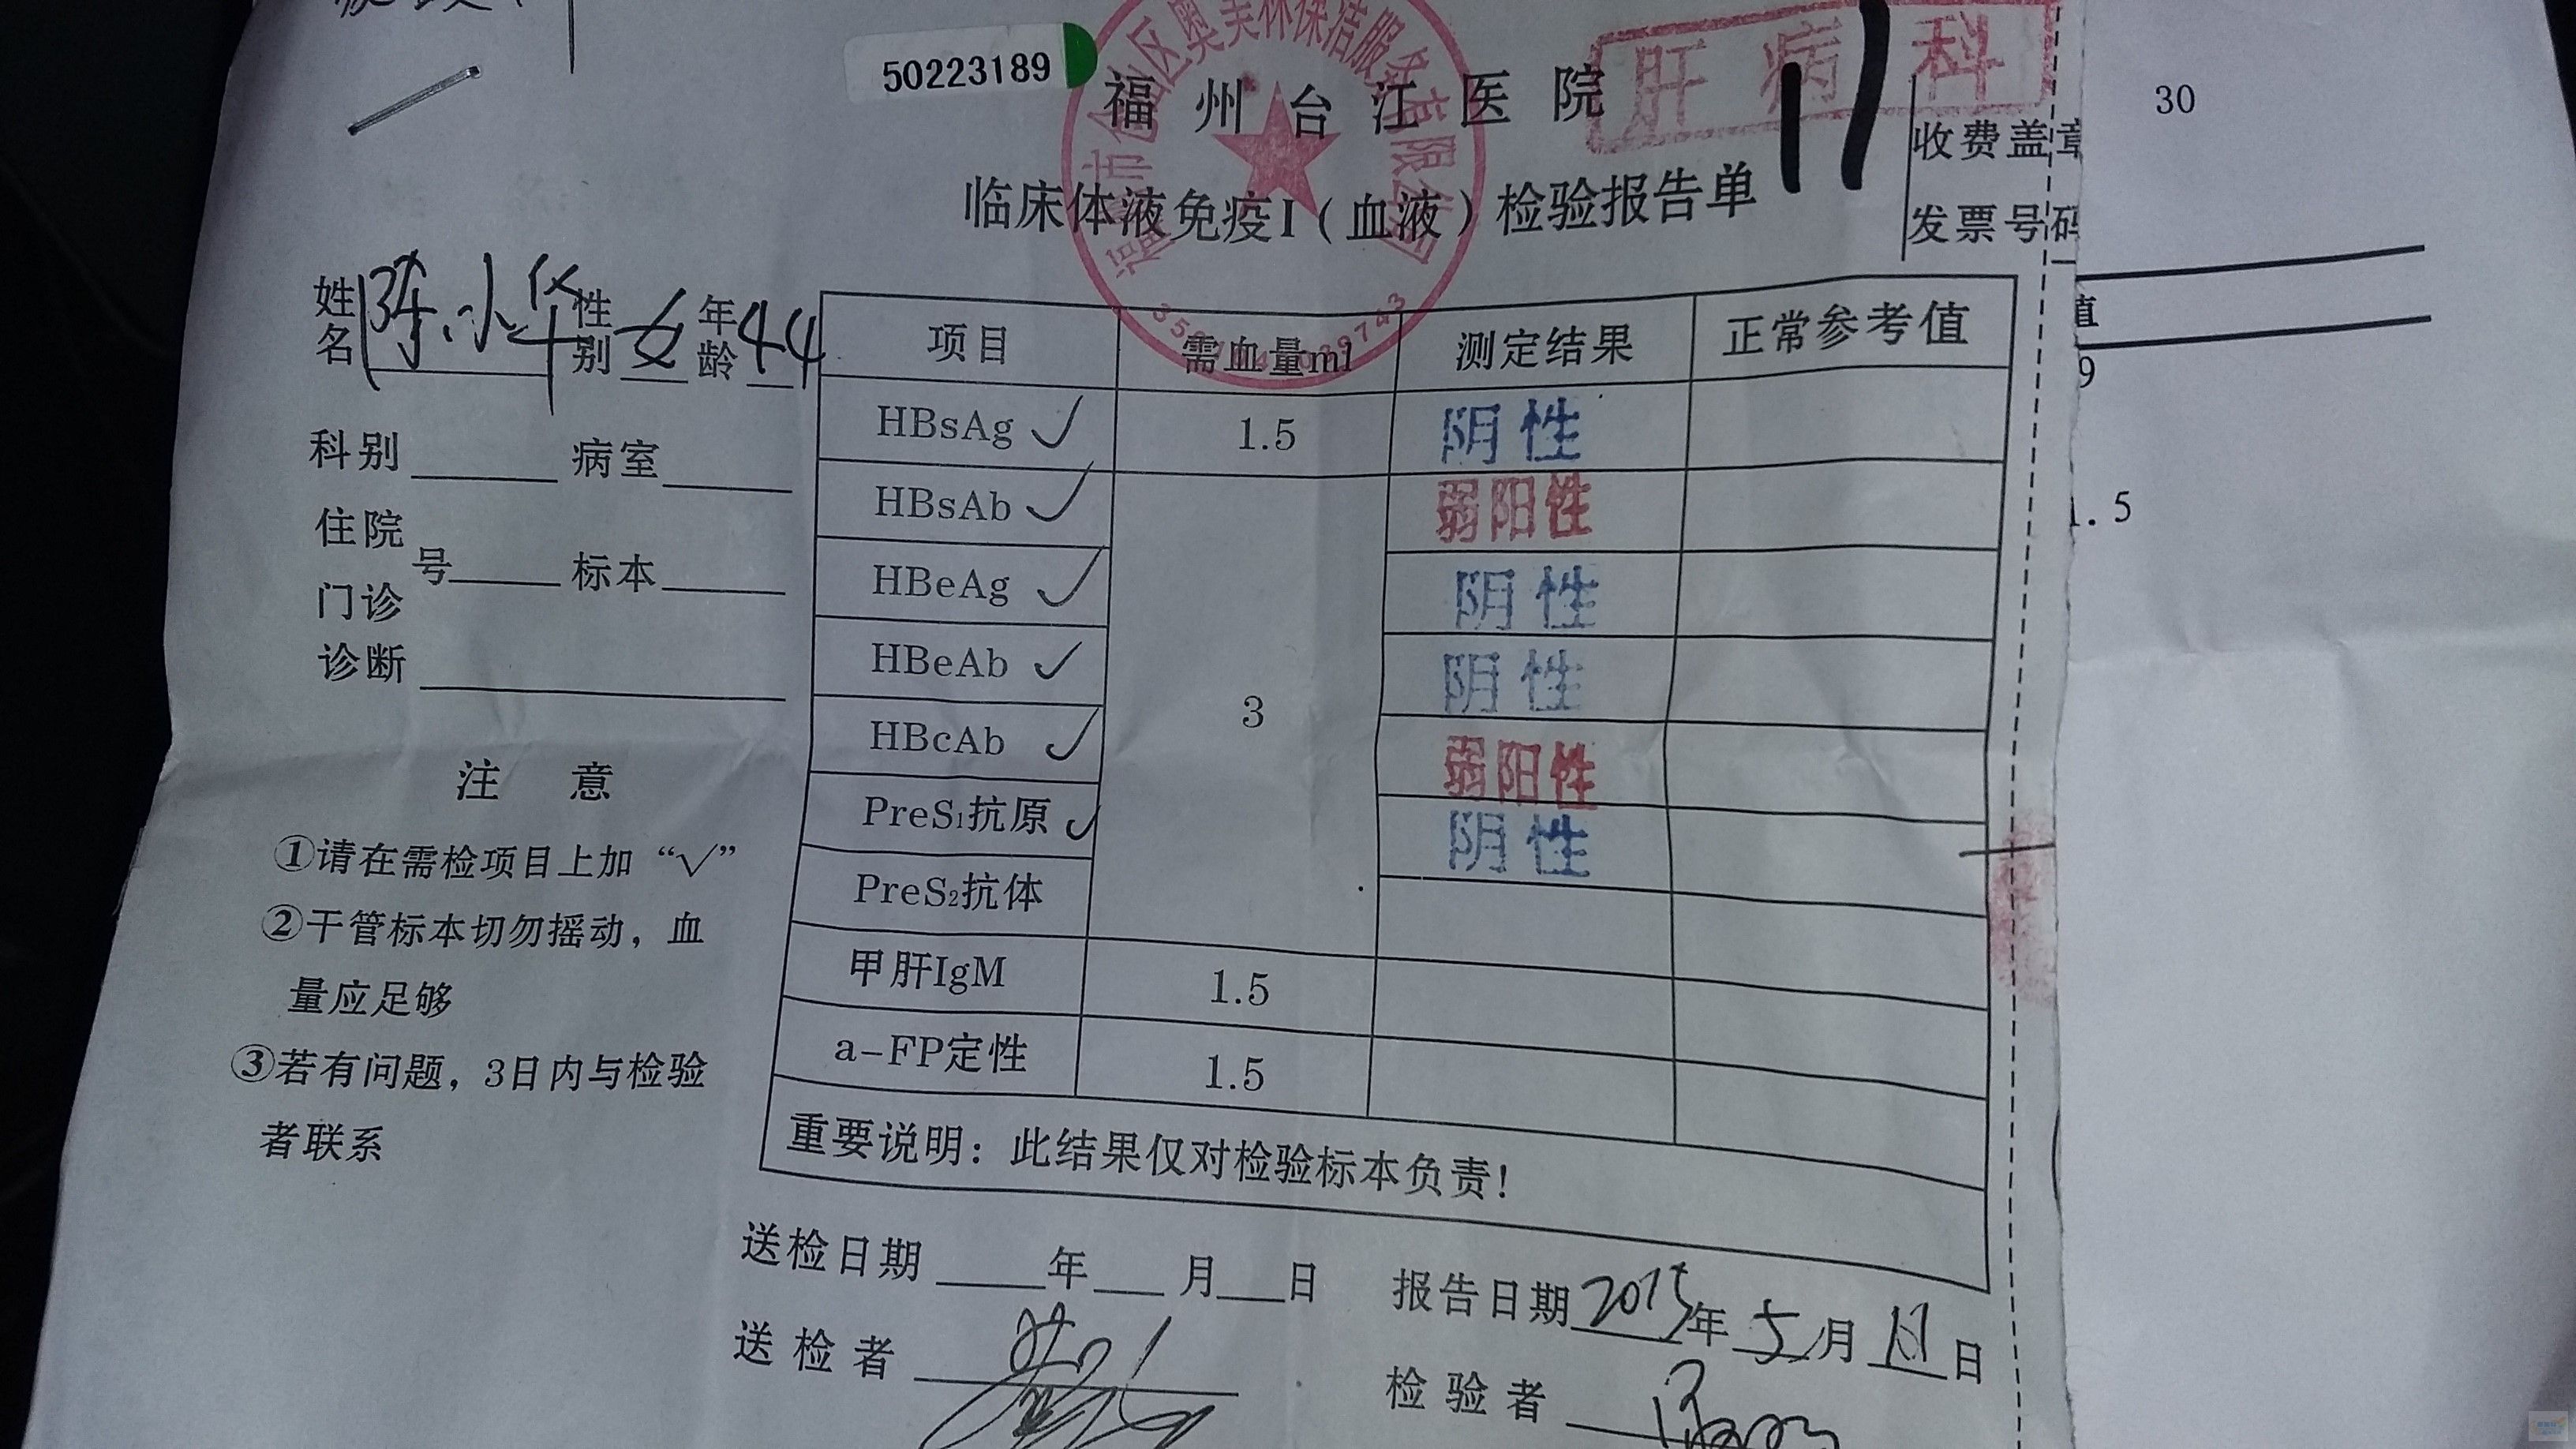 50223189
肝病科
福州台江医院
17
30
收费盖章
临床体液免疫I（血液）检验报告单
发票号码
姓名 陈小华 性别 女 年龄 44
项目 需血量ml 测定结果 正常参考值
值
HBsAg ✓ 1.5 阴性
9
科别 病室
HBsAb ✓ 弱阳性
1.5
住院
门诊 号 标本
HBeAg ✓ 阴性
诊断
HBeAb ✓ 阴性
3
HBcAb ✓ 弱阳性
注意
PreS₁抗原 ✓ 阴性
①请在需检项目上加“√”
PreS₂抗体
②干管标本切勿摇动，血
量应足够
甲肝IgM 1.5
③若有问题，3日内与检验
者联系
a-FP定性 1.5
重要说明：此结果仅对检验标本负责！
送检日期 年 月 日 报告日期 2015年 5月 日
送检者 检验者